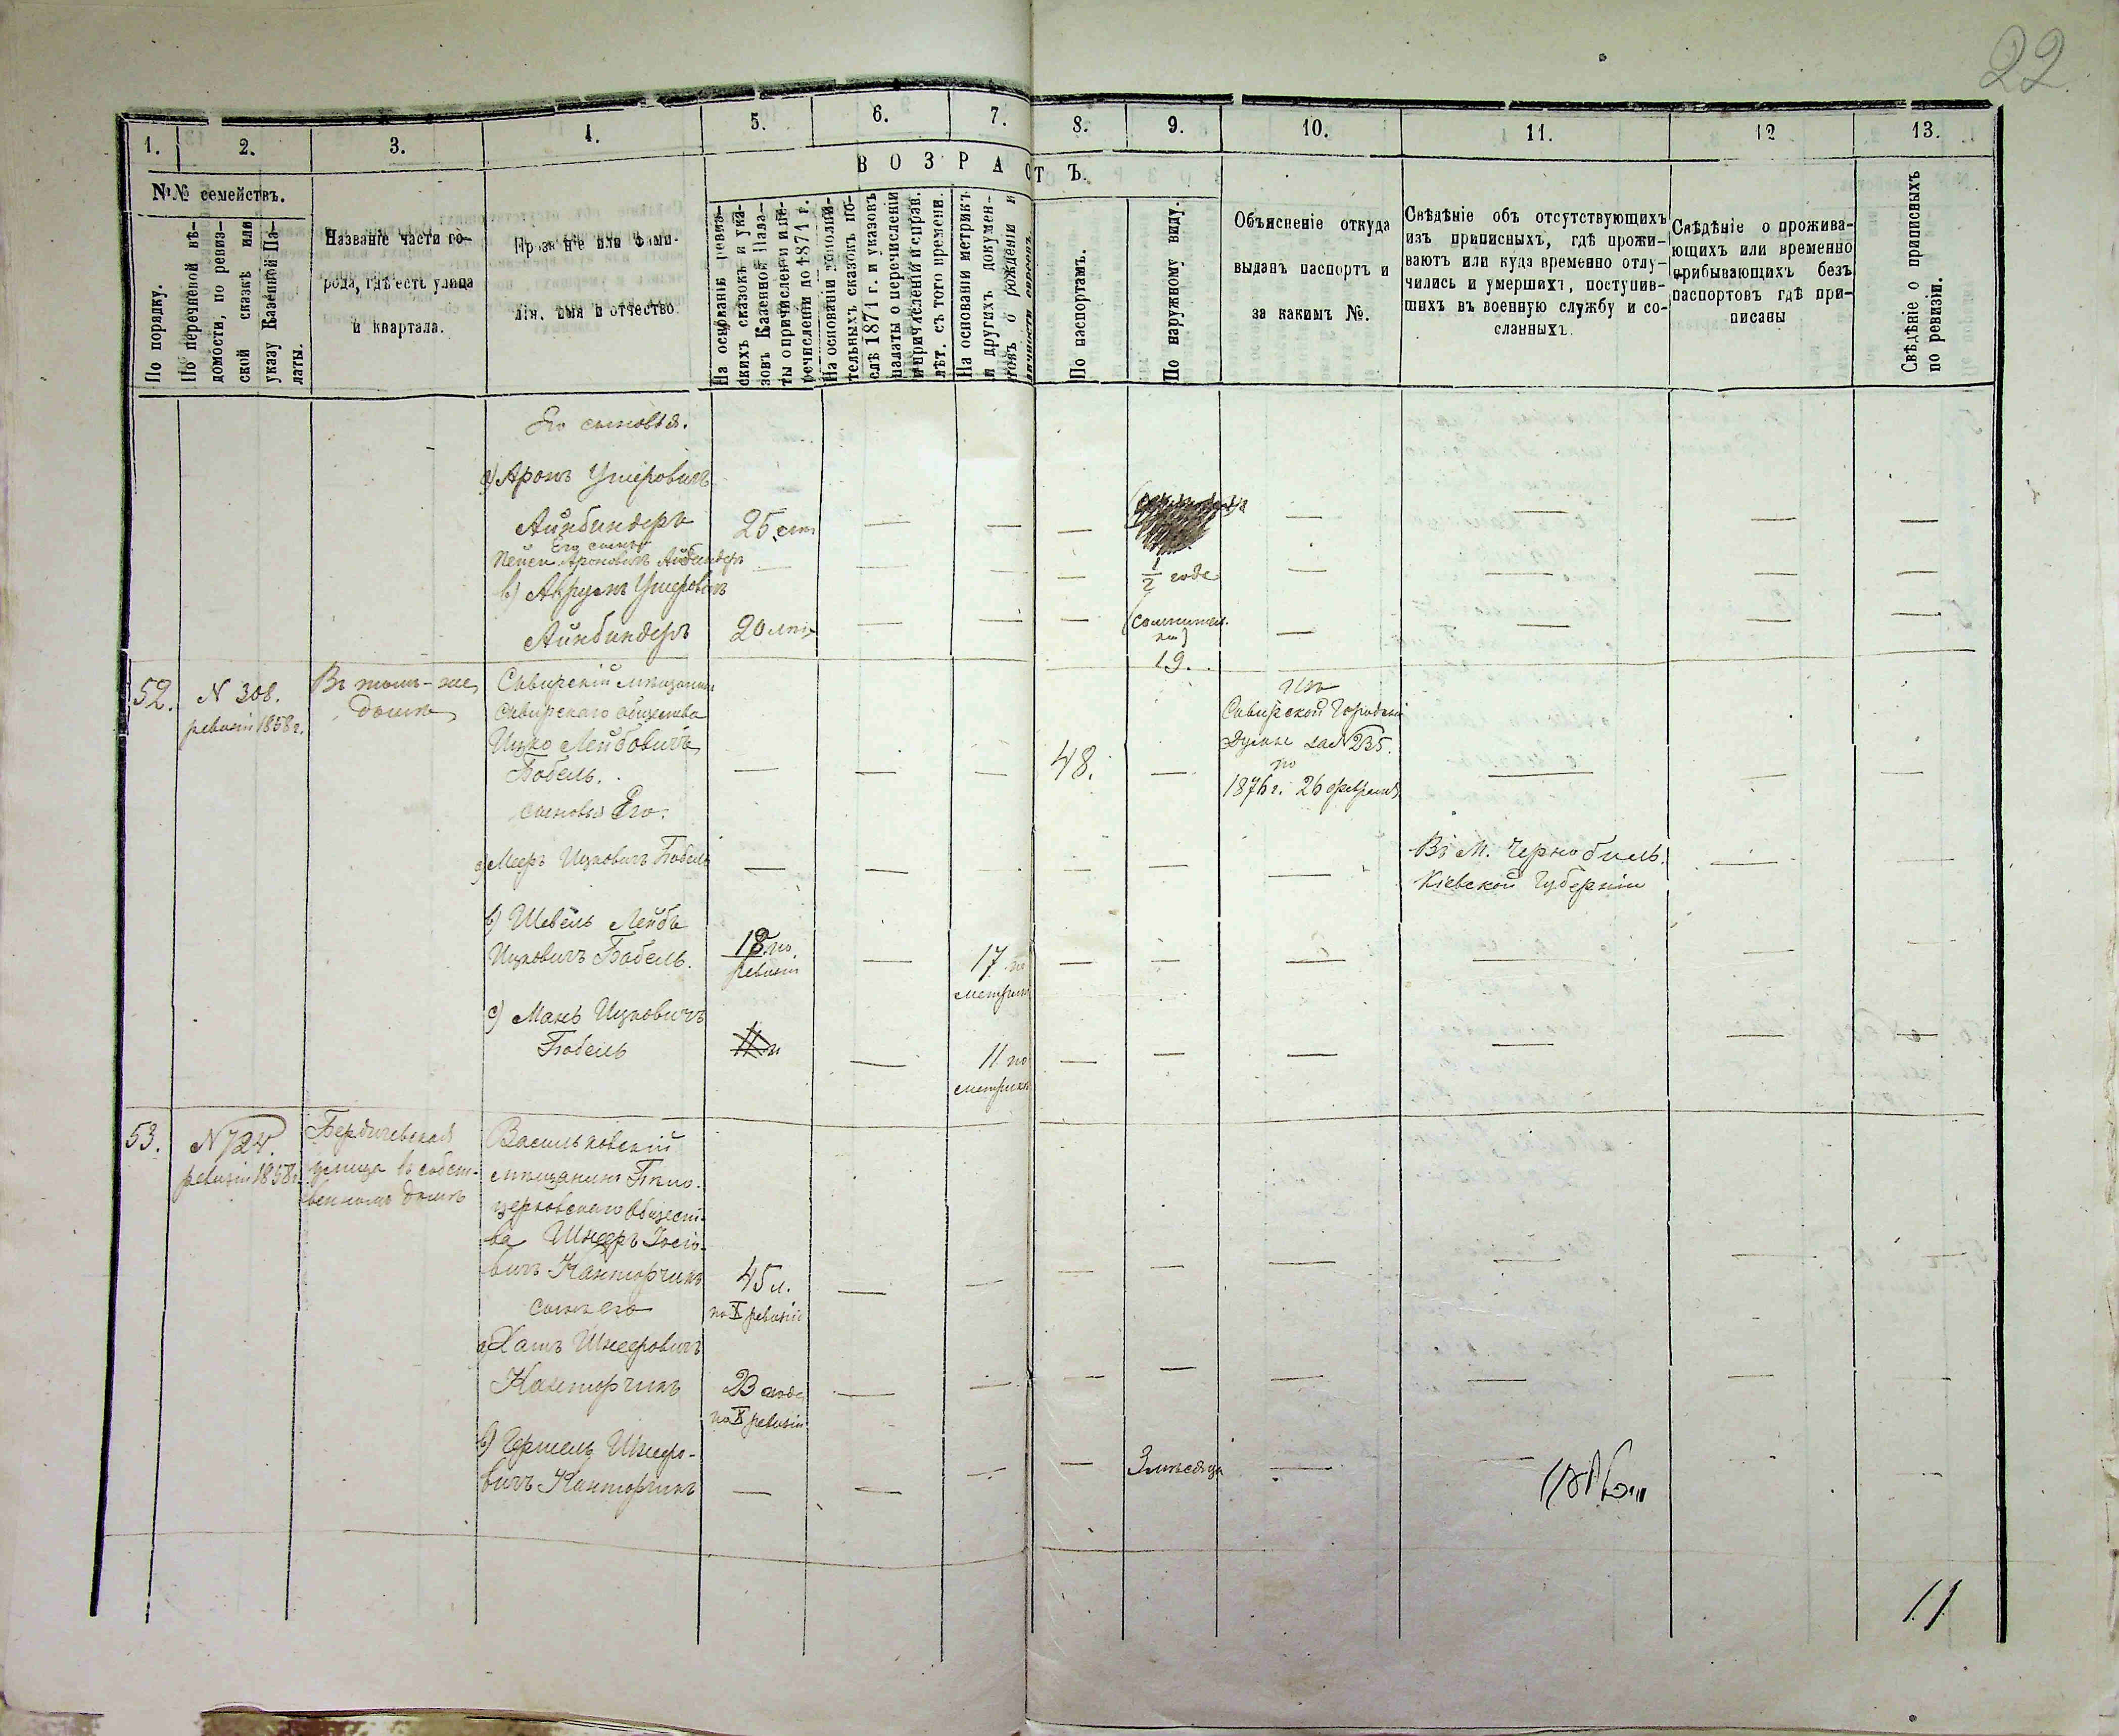 22.
1. 2. 3. 4. 5. 6. 7. 8. 9. 10. 11. 12 13.
ВОЗРАСТЪ.
№№ семействъ.
По порядку.
По перечневой вѣ-
домости, по ревиз-
ской сказкѣ или
указу Казенной Па-
латы.
Названіе части го-
рода, гдѣ есть улица
и квартала.
Прозваніе или фами-
лія, имя и отчество.
На основаніи ревиз-
скихъ сказокъ и ука-
зовъ Казенной Пала-
ты о причисленіи и пе-
речисленіи до 1871 г.
На основаніи дополни-
тельныхъ сказокъ по-
слѣ 1871 г. и указовъ
палаты о перечисленіи
и причисленіи и справ.
лѣт. съ того времени.
На основаніи метрикъ
и другихъ докумен-
товъ о рожденіи и
По паспортамъ.
По наружному виду.
Объясненіе откуда
выданъ паспортъ и
за какимъ №.
Свѣдѣніе объ отсутствующихъ
изъ приписныхъ, гдѣ прожи-
ваютъ или куда временно отлу-
чились и умершихъ, поступив-
шихъ въ военную службу и со-
сланныхъ.
Свѣдѣніе о прожива-
ющихъ или временно
прибывающихъ безъ
паспортовъ гдѣ при-
писаны
Свѣдѣніе о приписныхъ
по ревизіи.
Его сыновья.
а) Аронъ Умеровичъ
Айнбиндеръ 25 лѣт — — — — — — —
Его сынъ
Пейси Ароновичъ Айнбиндеръ — — — — 1/2 года — —
b) Аврумъ Умеровичъ
Айнбиндеръ 20 лѣтъ — — — (сомнител.
но)
19. — — — —
52. N 308.
ревизіи 1858 г.
Въ томъ-же
домѣ
Сквирскій мѣщанинъ
Сквирскаго общества
Ицко Лейбовичъ
Бобель. — — — 48. —
изъ
Сквирской Городской
Думы за N 235.
по
1876 г. 26 февраля
— — —
сыновья Его:
а) Мееръ Ицковичъ Бобель — — — — — —
Въ М. Чернобыль.
Кіевской Губерніи
— —
b) Шевель Лейбъ
Ицковичъ Бобель. 18 по
ревизіи — 17 по
метрикѣ — — — — — —
c) Манъ Ицковичъ
Бобель 11 — 11 по
метрикѣ — — — — — —
53. N 724.
ревизіи 1858 г.
Бердичевская
улица въ собст-
венномъ домѣ
Васильковскій
мѣщанинъ Бѣло-
церковскаго общест-
ва Шнееръ Іосіо-
вичъ Канторчикъ 45 л.
по X ревизіи — — — — — — — —
сынъ его
а) Хаимъ Шнееровичъ
Канторчикъ 23 года
по X ревизіи — — — — — — — —
b) Гершель Шнееро-
вичъ Канторчикъ — — — — 3 мѣсяца — — — —
11